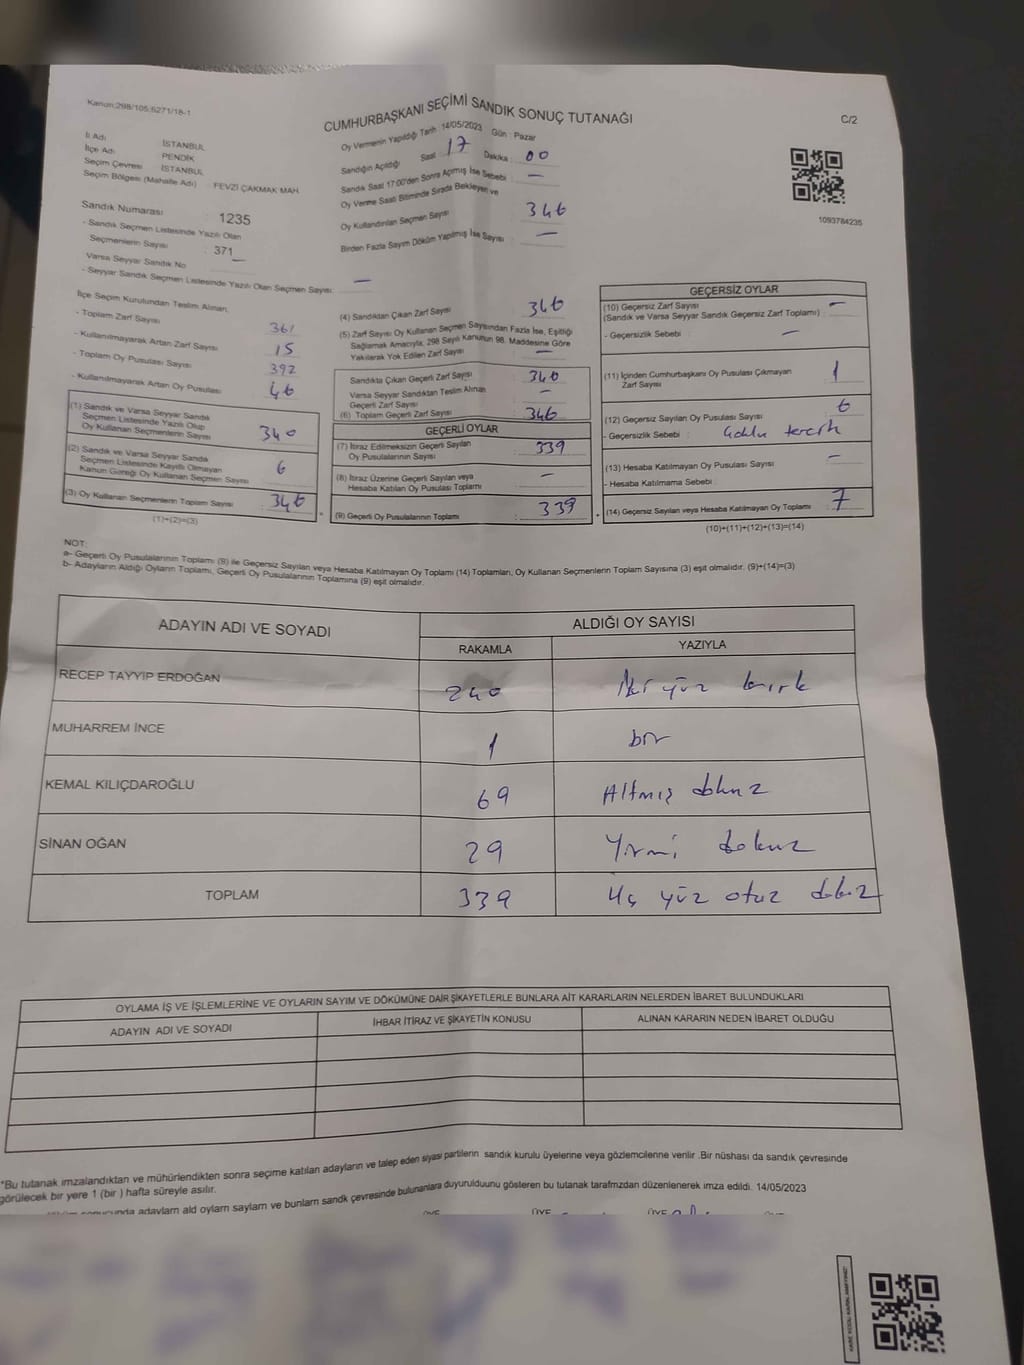 Kanun:298/105,6271/18-1
CUMHURBAŞKANI SEÇİMİ SANDIK SONUÇ TUTANAĞI
C/2
İli Adı : İSTANBUL
İlçe Adı : PENDİK
Seçim Çevresi : İSTANBUL
Seçim Bölgesi (Mahalle Adı) : FEVZİ ÇAKMAK MAH.
Oy Vermenin Yapıldığı Tarih : 14/05/2023 Gün : Pazar
Sandığın Açıldığı Saat : 17 Dakika : 00
Sandık Saat 17:00'den Sonra Açılmış İse Sebebi : —
Oy Verme Saati Bitiminde Sırada Bekleyen ve
Oy Kullandırılan Seçmen Sayısı : 346
Birden Fazla Sayım Döküm Yapılmış İse Sayısı : —
1093784235
Sandık Numarası : 1235
- Sandık Seçmen Listesinde Yazılı Olan
Seçmenlerin Sayısı : 371
Varsa Seyyar Sandık No : —
- Seyyar Sandık Seçmen Listesinde Yazılı Olan Seçmen Sayısı: —
İlçe Seçim Kurulundan Teslim Alınan,
- Toplam Zarf Sayısı : 361
- Kullanılmayarak Artan Zarf Sayısı : 15
- Toplam Oy Pusulası Sayısı : 392
- Kullanılmayarak Artan Oy Pusulası : 46
(1) Sandık ve Varsa Seyyar Sandık
Seçmen Listesinde Yazılı Olup
Oy Kullanan Seçmenlerin Sayısı : 340
(2) Sandık ve Varsa Seyyar Sandık
Seçmen Listesinde Kayıtlı Olmayan
Kanun Gereği Oy Kullanan Seçmen Sayısı : 6
(3) Oy Kullanan Seçmenlerin Toplam Sayısı : 346
(1)+(2)=(3)
(4) Sandıktan Çıkan Zarf Sayısı : 346
(5) Zarf Sayısı Oy Kullanan Seçmen Sayısından Fazla İse, Eşitliği
Sağlamak Amacıyla, 298 Sayılı Kanunun 98. Maddesine Göre
Yakılarak Yok Edilen Zarf Sayısı : —
Sandıkta Çıkan Geçerli Zarf Sayısı : 346
Varsa Seyyar Sandıktan Teslim Alınan
Geçerli Zarf Sayısı : —
(6) Toplam Geçerli Zarf Sayısı : 346
GEÇERLİ OYLAR
(7) İtiraz Edilmeksizin Geçerli Sayılan
Oy Pusulalarının Sayısı : 339
(8) İtiraz Üzerine Geçerli Sayılan veya
Hesaba Katılan Oy Pusulası Toplamı : —
(9) Geçerli Oy Pusulalarının Toplamı : 339
GEÇERSİZ OYLAR
(10) Geçersiz Zarf Sayısı : —
(Sandık ve Varsa Seyyar Sandık Geçersiz Zarf Toplamı)
- Geçersizlik Sebebi : —
(11) İçinden Cumhurbaşkanı Oy Pusulası Çıkmayan
Zarf Sayısı : 1
(12) Geçersiz Sayılan Oy Pusulası Sayısı : 6
- Geçersizlik Sebebi : Çoklu tercih
(13) Hesaba Katılmayan Oy Pusulası Sayısı : —
- Hesaba Katılmama Sebebi :
(14) Geçersiz Sayılan veya Hesaba Katılmayan Oy Toplamı : 7
(10)+(11)+(12)+(13)=(14)
NOT:
a- Geçerli Oy Pusulalarının Toplamı (9) ile Geçersiz Sayılan veya Hesaba Katılmayan Oy Toplamı (14) Toplamları, Oy Kullanan Seçmenlerin Toplam Sayısına (3) eşit olmalıdır. (9)+(14)=(3)
b- Adayların Aldığı Oyların Toplamı, Geçerli Oy Pusulalarının Toplamına (9) eşit olmalıdır.
ADAYIN ADI VE SOYADI ALDIĞI OY SAYISI
RAKAMLA YAZIYLA
RECEP TAYYIP ERDOĞAN 240 İki yüz kırk
MUHARREM İNCE 1 bir
KEMAL KILIÇDAROĞLU 69 Altmış dokuz
SİNAN OĞAN 29 Yirmi dokuz
TOPLAM 339 Üç yüz otuz dokuz
OYLAMA İŞ VE İŞLEMLERİNE VE OYLARIN SAYIM VE DÖKÜMÜNE DAİR ŞİKAYETLERLE BUNLARA AİT KARARLARIN NELERDEN İBARET BULUNDUKLARI
ADAYIN ADI VE SOYADI İHBAR İTİRAZ VE ŞİKAYETİN KONUSU ALINAN KARARIN NEDEN İBARET OLDUĞU
*Bu tutanak imzalandıktan ve mühürlendikten sonra seçime katılan adayların ve talep eden siyasi partilerin sandık kurulu üyelerine veya gözlemcilerine verilir .Bir nüshası da sandık çevresinde
görülecek bir yere 1 (bir ) hafta süreyle asılır.
sonucunda adayların ald oyların sayların ve bunların sandk çevresinde bulunanlara duyurulduunu gösteren bu tutanak tarafmzdan düzenlenerek imza edildi. 14/05/2023
ÜYE ÜYE ÜYE